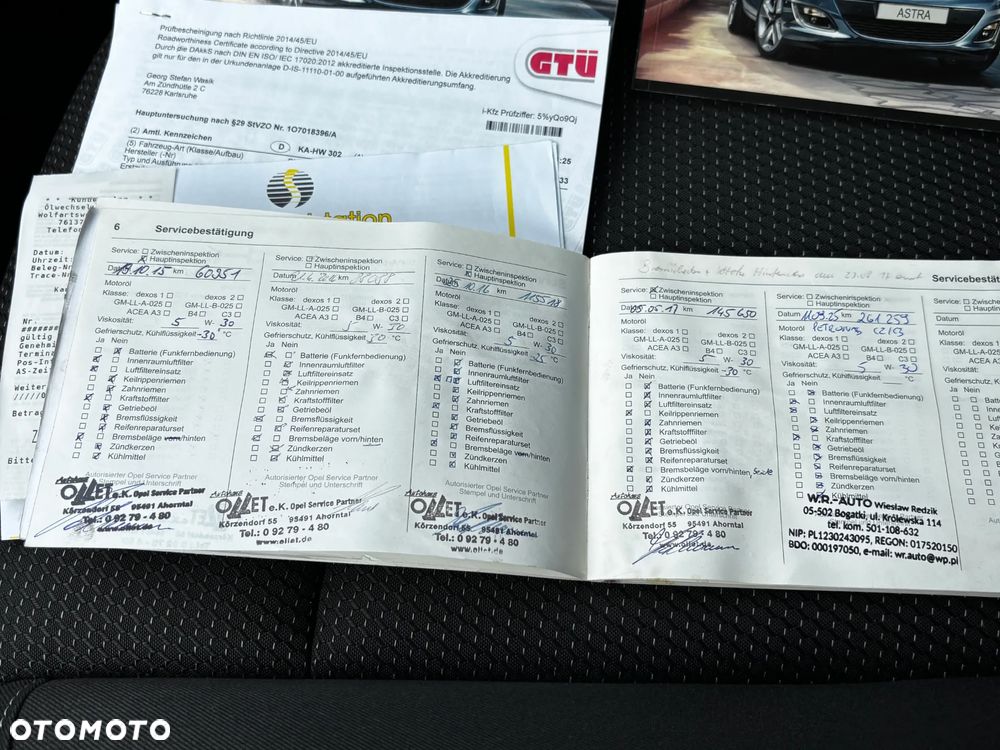 Prüfbescheinigung nach Richtlinie 2014/45/EU
Roadworthiness Certificate according to Directive 2014/45/EU
Durch die DAkkS nach DIN EN ISO/ IEC 17020:2012 akkreditierte Inspektionsstelle. Die Akkreditierung
gilt nur für den in der Urkundenanlage D-IS-11110-01-00 aufgeführten Akkreditierungsumfang.
GTÜ
ASTRA
Georg Stefan Wasik
Am Zündhütle 2 C
76228 Karlsruhe
i-Kfz Prüfziffer: 5%yQo9Qj
Hauptuntersuchung nach §29 StVZO Nr. 1O7018396/A
(2) Amtl. Kennzeichen
D KA-HW 302
(5) Fahrzeug-Art (Klasse/Aufbau)
Hersteller (-Nr)
Typ und Ausführung
:25
33
Ölwechsel
Wolfartsw
7613
Telefo
Datum:
Uhrzeit:
Beleg-N
Trace-N
Nr.
gültig
Genehmi
Termina
Pos-Int
AS-Zeit
Weiter
Betrag
Bitte
6 Servicebestätigung
Service: Zwischeninspektion
Hauptinspektion
Datum 10.15 km 60951
Motoröl
Klasse: dexos 1 dexos 2
GM-LL-A-025 GM-LL-B-025
ACEA A3 C3
Viskosität: 5 W- 30
Gefrierschutz, Kühlflüssigkeit -30 °C
Ja Nein
Batterie (Funkfernbedienung)
Innenraumluftfilter
Luftfiltereinsatz
Keilrippenriemen
Zahnriemen
Kraftstofffilter
Getriebeöl
Bremsflüssigkeit
Reifenreparaturset
Bremsbeläge vorn/hinten
Zündkerzen
Kühlmittel
Autorisierter Opel Service Partner
Stempel und Unterschrift
Autohaus
OLLET e.K. Opel Service Partner
Körzendorf 55 95491 Ahorntal
Tel.: 0 92 79 - 4 80
Service: Zwischeninspektion
Hauptinspektion
Datum km
Motoröl
Klasse: dexos 1 dexos 2
GM-LL-A-025 GM-LL-B-025
ACEA A3 C3
Viskosität: W-
Gefrierschutz, Kühlflüssigkeit °C
Ja Nein
Batterie (Funkfernbedienung)
Innenraumluftfilter
Luftfiltereinsatz
Keilrippenriemen
Zahnriemen
Kraftstofffilter
Getriebeöl
Bremsflüssigkeit
Reifenreparaturset
Bremsbeläge vorn/hinten
Zündkerzen
Kühlmittel
Autorisierter Opel Service Partner
Stempel und Unterschrift
Autohaus
OLLET e.K. Opel Service Partner
Körzendorf 55 95491 Ahorntal
Tel.: 0 92 79 - 4 80
www.ollet.de
Service: Zwischeninspektion
Hauptinspektion
10.16 km 115518
Motoröl
Klasse: dexos 1 dexos 2
GM-LL-A-025 GM-LL-B-025
ACEA A3 C3
Viskosität: 5 W- 30
Gefrierschutz, Kühlflüssigkeit -25 °C
Ja Nein
Batterie (Funkfernbedienung)
Innenraumluftfilter
Luftfiltereinsatz
Keilrippenriemen
Zahnriemen
Kraftstofffilter
Getriebeöl
Bremsflüssigkeit
Reifenreparaturset
Bremsbeläge vorn/hinten
Zündkerzen
Kühlmittel
Autorisierter Opel Service Partner
Stempel und Unterschrift
Autohaus
OLLET e.K. Opel Service Partner
Körzendorf 55 95491 Ahorntal
Tel.: 0 92 79 - 4 80
www.ollet.de
Service: Zwischeninspektion
Hauptinspektion
05.05.17 km 145650
Motoröl
Klasse: dexos 1 dexos 2
GM-LL-A-025 GM-LL-B-025
ACEA A3 B4 C3
Viskosität: 5 W- 30
Gefrierschutz, Kühlflüssigkeit -30 °C
Ja Nein
Batterie (Funkfernbedienung)
Innenraumluftfilter
Luftfiltereinsatz
Keilrippenriemen
Zahnriemen
Kraftstofffilter
Getriebeöl
Bremsflüssigkeit
Reifenreparaturset
Bremsbeläge vorn/hinten
Zündkerzen
Kühlmittel
Autohaus
OLLET e.K. Opel Service Partner
Körzendorf 55 95491 Ahorntal
Tel.: 0 92 79 - 4 80
www.ollet.de
Servicebestäti
Service: Zwischeninspektion
Hauptinspektion
Datum 11.09.25 km 261 259
Motoröl PETRONAS C2/C3
Klasse: dexos 1 dexos 2
GM-LL-A-025 GM-LL-B-025
ACEA A3 B4 C3
Viskosität: 5 W- 30
Gefrierschutz, Kühlflüssigkeit °C
Ja Nein
Batterie (Funkfernbedienung)
Innenraumluftfilter
Luftfiltereinsatz
Keilrippenriemen
Zahnriemen
Kraftstofffilter
Getriebeöl
Bremsflüssigkeit
Reifenreparaturset
Bremsbeläge vorn/hinten
Zündkerzen
Kühlmittel
W.R.-AUTO Wiesław Redzik
05-502 Bogatki, ul. Królewska 114
tel. kom. 501-108-632
NIP: PL1230243095, REGON: 017520150
BDO: 000197050, e-mail: wr.auto@wp.pl
Service:
Datum
Motoröl
Klasse:
GM-LL-
Viskosität:
Gefrierschutz
Ja Nein
OTOMOTO